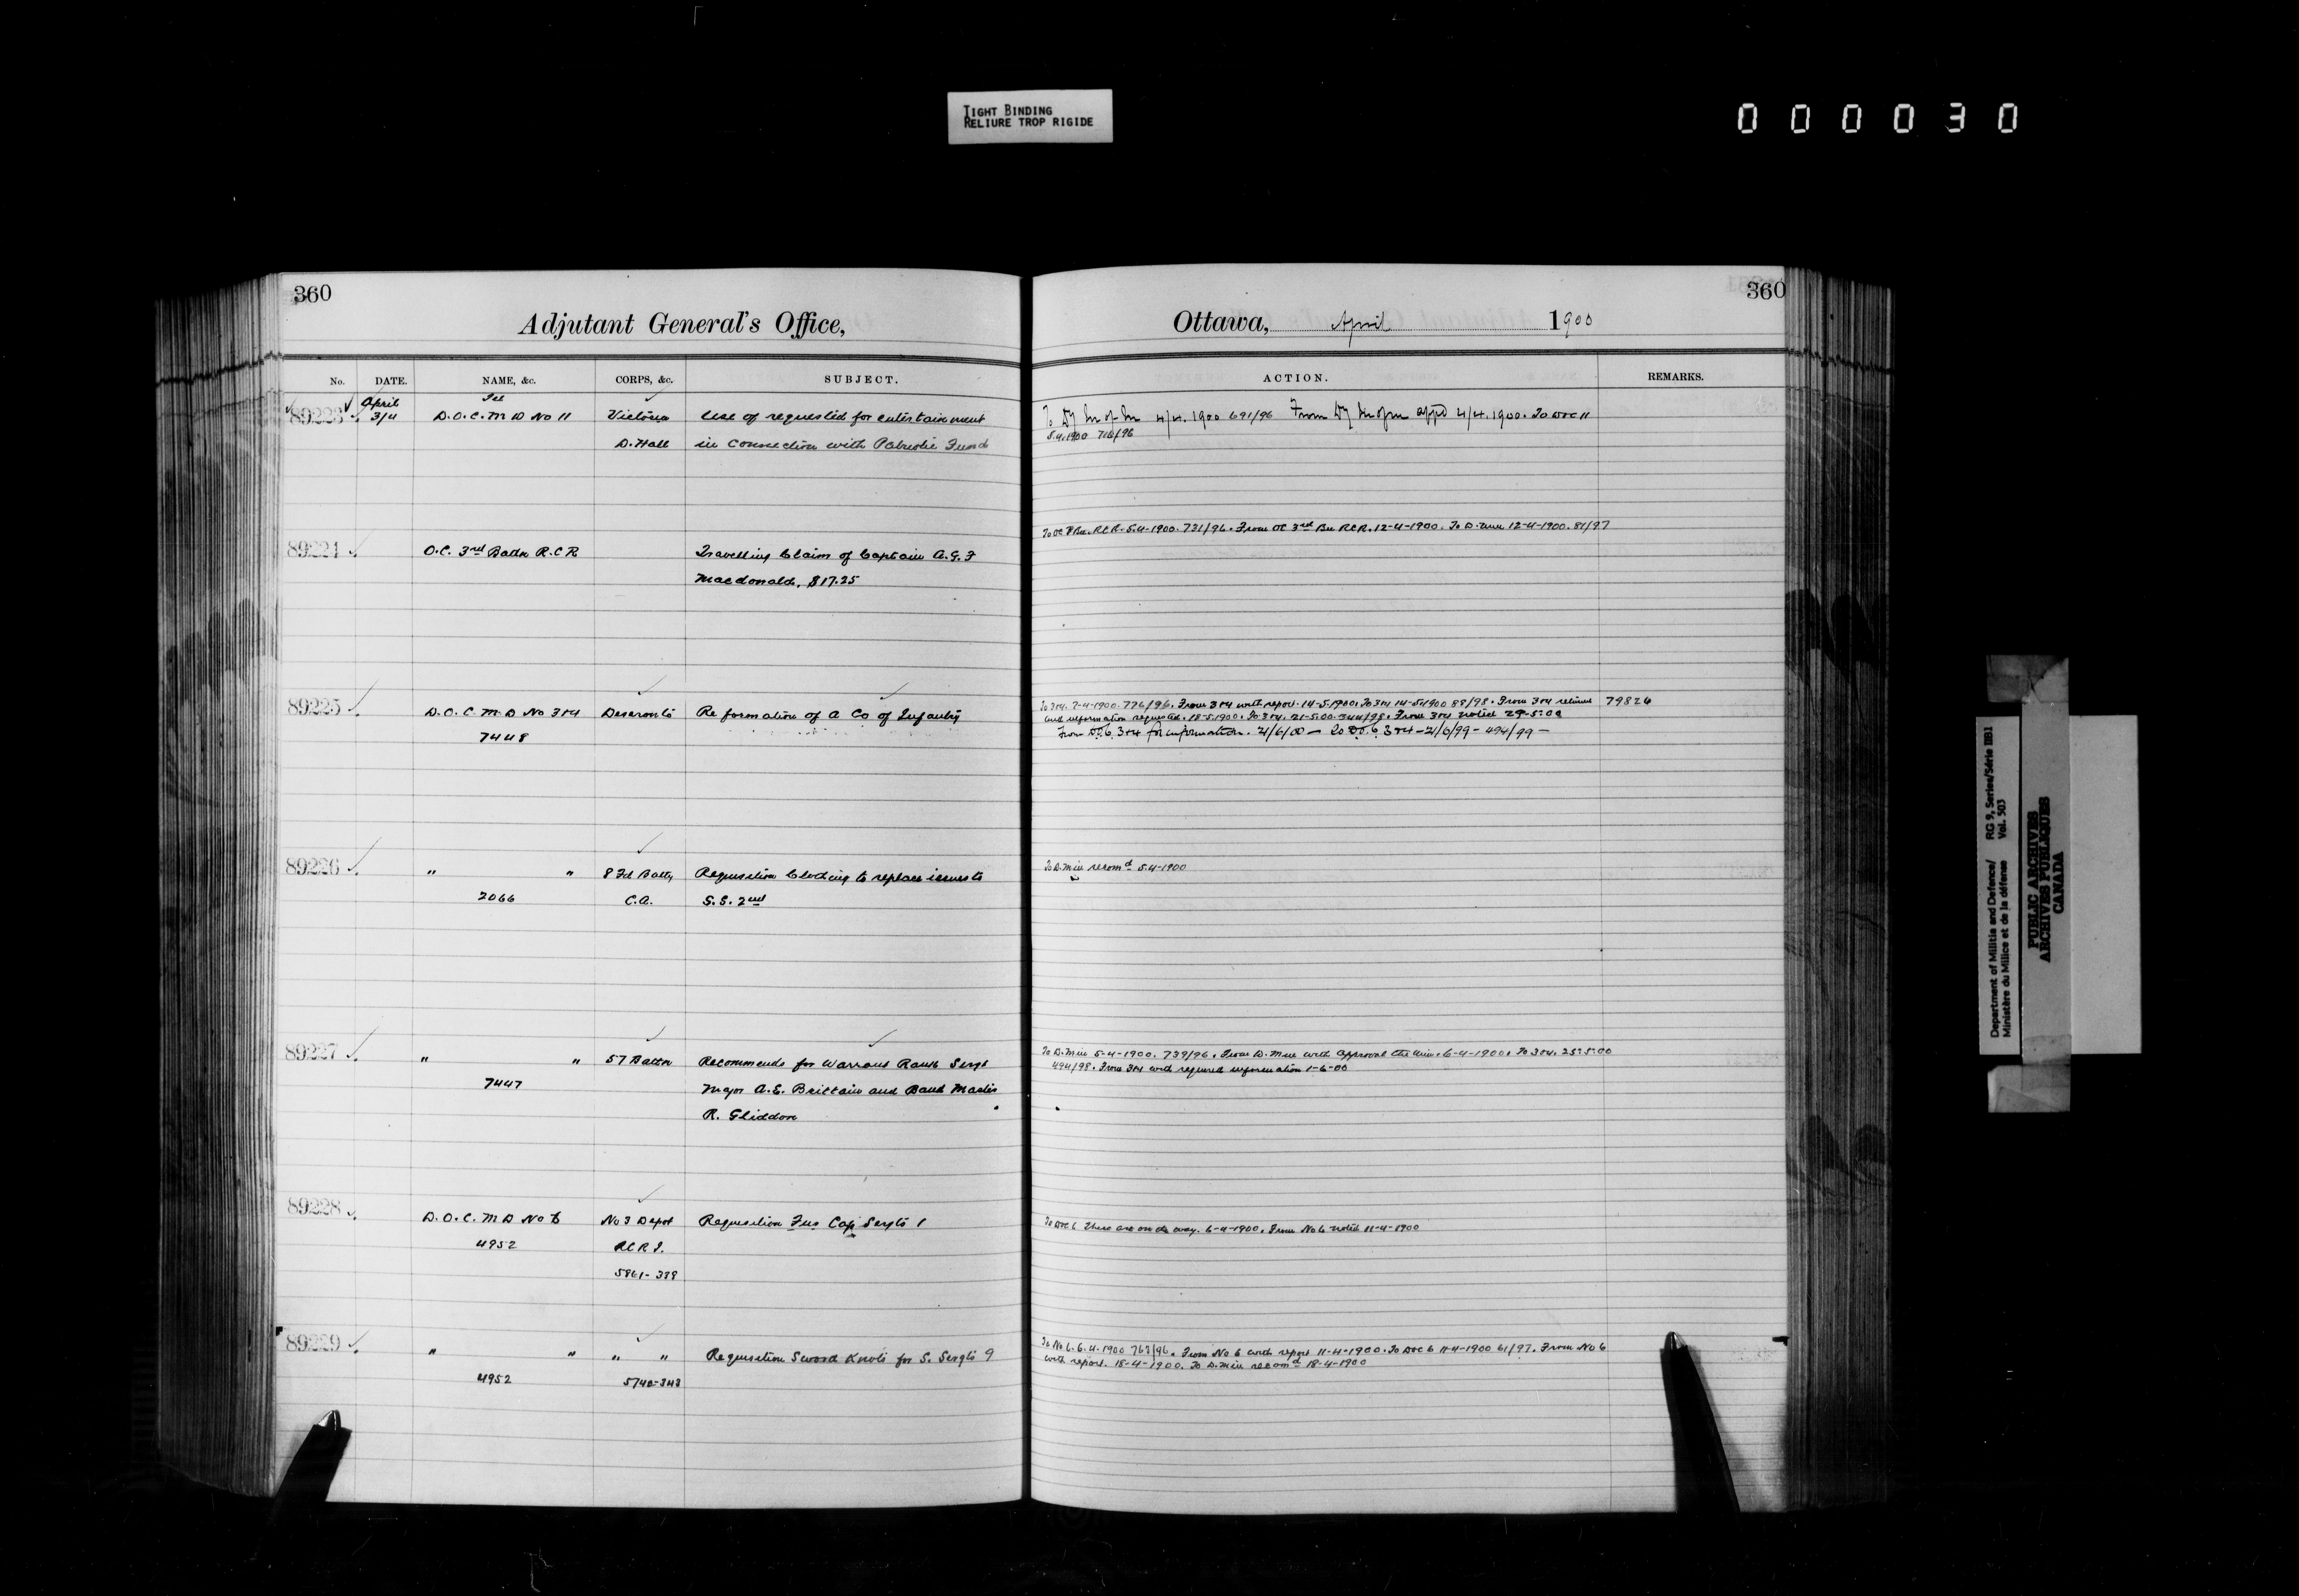 TIGHT BINDING
RELIURE TROP RIGIDE
000030
360
Adjutant General's Office,
No. DATE. NAME, &c. CORPS, &c. SUBJECT.
89223 April 3/4 Tel D.O.C. M D No 11 Victoria Use of requested for entertainment
D. Hall in connection with Patriotic Fund
89224 O.C. 3rd Battn R.C.R Travelling Claim of Captain A.G.F
Macdonald, $17.25
89225 D.O.C. M.D No 3&4 Deseronto Re formation of a Co of Infantry
7448
89226 " " 8 Fd Batty Requisition Clothing to replace issues to
2066 C.A. S.S. 2nd
89227 " " 57 Battn Recommends for Warrant Rank Sergt
7447 Major A.E. Brittain and Band Master
R. Gliddon
89228 D.O.C. M D No 6 No 3 Depot Requisition Fur Cap Sergts 1
4952 RCR I.
5861-339
89229 " " " " Requisition Sword Knots for S. Sergts 9
4952 5740-343
360
Ottawa, April 1900
ACTION. REMARKS.
To Dy Mr of Mr 4/4.1900 691/96 From Dy Mr of Mr appd 4/4.1900. To DOC 11
5.4.1900 716/96
To OC 3 Bn. RCR. 5-4-1900. 731/96. From OC 3rd Bn RCR. 12-4-1900. To D. Min 12-4-1900. 81/97
To 3&4. 7-4-1900. 726/96. From 3&4 with report. 14-5-1900. To 3&4 14-5-1900 88/98. From 3&4 returns 79826
and information requested. 18-5-1900. To 3&4. 21-5-00. 344/98. From 3&4 noted 29-5-00
From 3&4 for information. 21/6/00 — To 3&4 - 21/6/99 - 494/99 —
To D. Min recomd 5-4-1900
To D. Min 5-4-1900. 739/96. From D. Min with approval the Min. 6-4-1900. To 3&4. 25-5-00
494/98. From 3&4 with required information 1-6-00
To DOC 6 these are on the way. 6-4-1900. From No 6 noted 11-4-1900
To No 6. 6.4.1900 763/96. From No 6 with report 11-4-1900. To DOC 6 11-4-1900 61/97. From No 6
with report. 18-4-1900. To D. Min recomd 18-4-1900
Department of Militia and Defence/ RG 9, Series/Série IIB1
Ministère du Milice et de la défense Vol. 503
PUBLIC ARCHIVES
ARCHIVES PUBLIQUES
CANADA